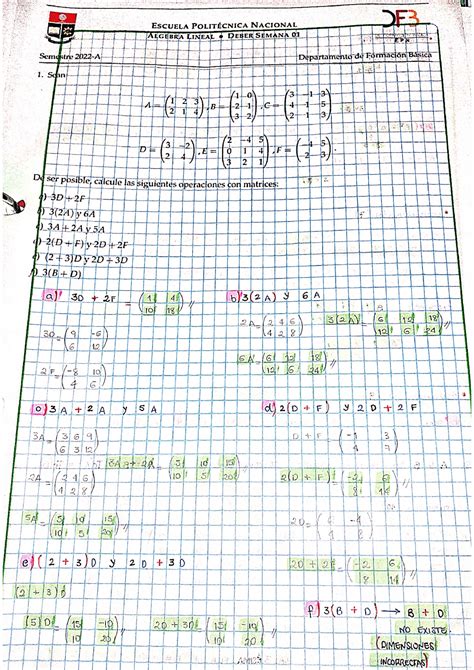 ESCUELA POLITÉCNICA NACIONAL
ALGEBRA LINEAL • DEBER SEMANA 01
Semestre 2022-A Departamento de Formación Básica
1. Sean
A = (1 2 3; 2 1 4), B = (1 0; 2 1; 3 2), C = (3 -1 3; 4 1 5; 2 1 3)
D = (3 -2; 2 4), E = (2 -4 5; 0 1 4; 3 2 1), F = (-4 5; 2 3)
De ser posible, calcule las siguientes operaciones con matrices:
3D + 2F
3(2A) y 6A
3A + 2A y 5A
2(D + F) y 2D + 2F
(2 + 3)D y 2D + 3D
3(B + D)
a) 3D + 2F = (1 4; 10 18)
3D = (9 -6; 6 12)
2F = (-8 10; 4 6)
b) 3(2A) y 6A
2A = (2 4 6; 4 2 8) 3(2A) = (6 12 18; 12 6 24)
6A = (6 12 18; 12 6 24)
c) 3A + 2A y 5A
3A = (3 6 9; 6 3 12)
3A + 2A = (5 10 15; 10 5 20)
2A = (2 4 6; 4 2 8)
5A = (5 10 15; 10 5 20)
d) 2(D + F) y 2D + 2F
D + F (-1 3; 4 7)
2(D + F) = (-2 6;
2D = (6 -4; 4 8)
2D + 2F = (-2 6; 8 14)
e) (2 + 3)D y 2D + 3D
(2 + 3)D
(5)D = (15 -10; 10 20) 2D + 3D = (15 -10; 10 20)
f) 3(B + D) → B + D
NO EXISTE
(DIMENSIONES
INCORRECTAS)